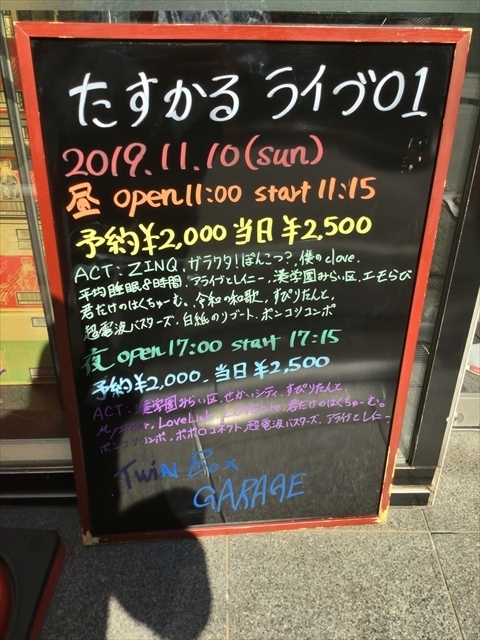 たすかる ライブ01
2019.11.10(sun)
昼 open11:00 start 11:15
予約¥2,000 当日¥2,500
ACT:ZINQ.ガラクタ!ぽんこつ?.僕のclove.
平均睡眠8時間.アライブとレイニー.湊学園みらい区.エモらび
君だけのはくちゅーむ。令和の和歌.すぴりたんと.
超電波バスターズ.白紙のリゾート.ポンコツコンポ
夜 open17:00 start 17:15
予約¥2,000.当日¥2,500
ACT:湊学園みらい区.せかいシティ.すぴりたんと.
LoveLink.君だけのはくちゅーむ。
ポンコツコンポ.ポポロコネクト.超電波バスターズ.アライブとレイニー
Twin Box
GARAGE